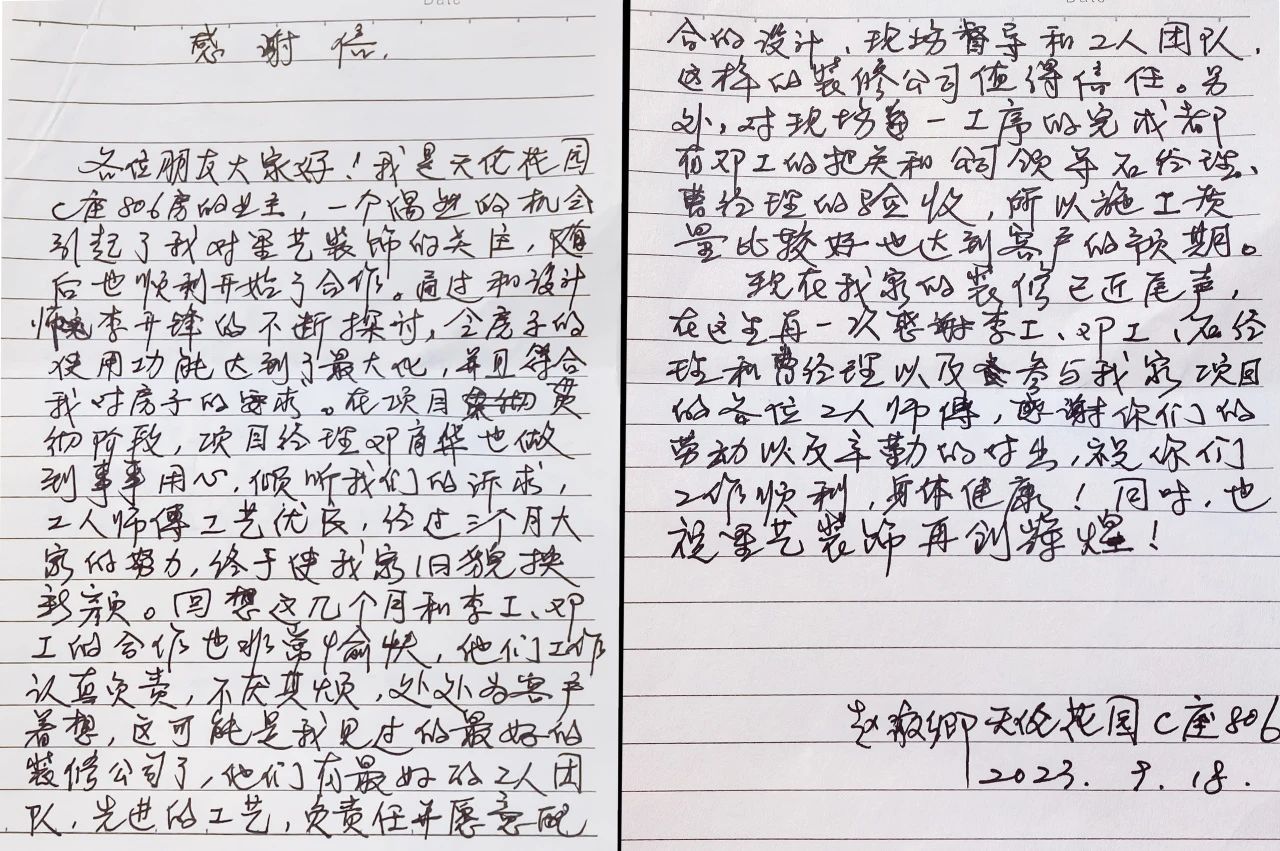 感谢信.
各位朋友大家好！我是天伦花园
C座806房的业主，一个偶然的机会
引起了我对星艺装饰的关注，随
后也顺利开始了合作。通过和设计
师李开锋的不断探讨，令房子的
使用功能达到了最大化，并且符合
我对房子的要求。在项目贯
彻阶段，项目经理邓育华也做
到事事用心，倾听我们的诉求，
工人师傅工艺优良，经过三个月大
家的努力，终于使我家旧貌换
新颜。回想这几个月和李工、邓
工的合作也非常愉快，他们工作
认真负责，不厌其烦，处处为客户
着想，这可能是我见过的最好的
装修公司了，他们有最好的工人团
队，先进的工艺，负责任并愿意配
合的设计、现场督导和工人团队，
这样的装修公司值得信任。另
外，对现场每一工序的完成都
有邓工的把关和公司领导石经理、
曹经理的验收，所以施工质
量比较好也达到客户的预期。
现在我家的装修已近尾声，
在这里再一次感谢李工、邓工、石经
理和曹经理以及参与我家项目
的各位工人师傅，感谢你们的
劳动以及辛勤的付出，祝你们
工作顺利，身体健康！同时，也
祝星艺装饰再创辉煌！
赵淑卿 天伦花园C座806
2023. 9. 18.